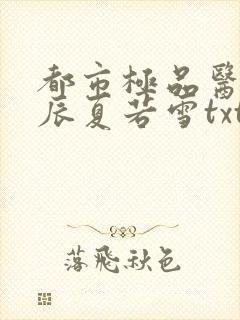 都市極品醫
辰夏若雪txt
落飛秋色